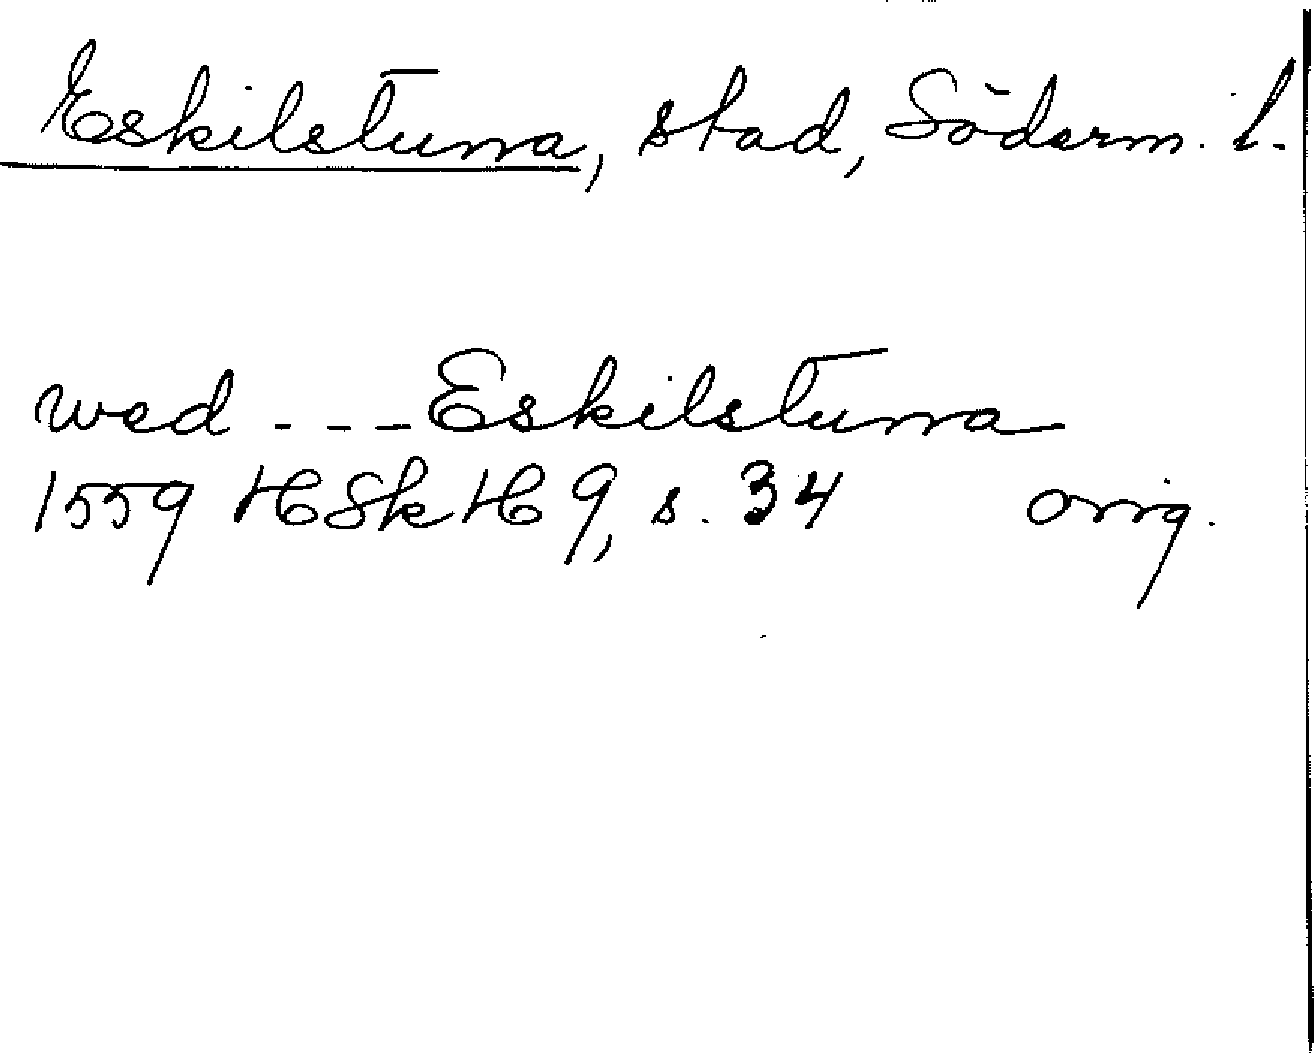 Eskilstuna, stad, Söderm. l.
wed --- Eskilstuna
1559 HSkH 9, s. 34 orig.